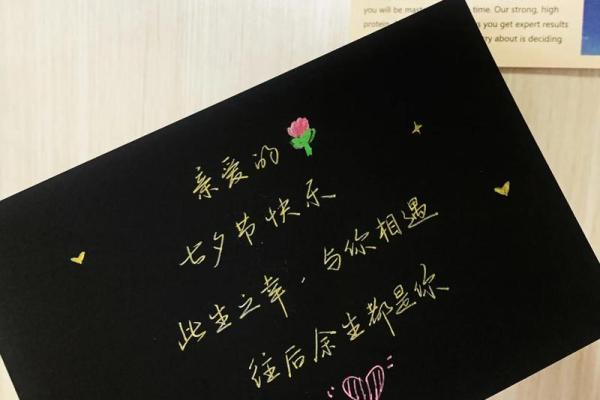 you will be
time. Our strong, high
protein
you get expert results
about is deciding
亲爱的
七夕节快乐
此生之幸，与你相遇
往后余生都是你